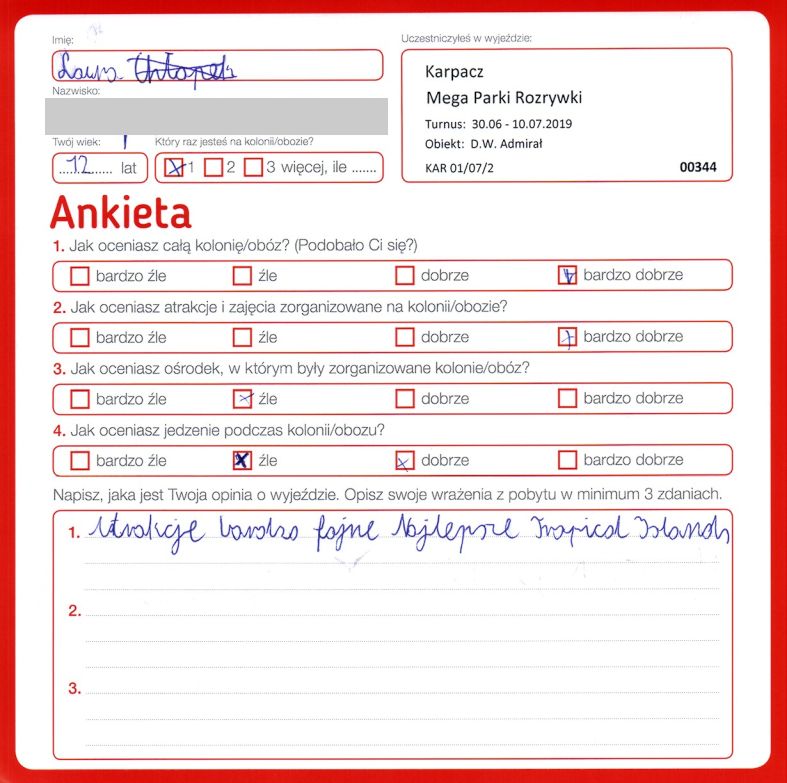 Imię:
Laura
Nazwisko:
Twój wiek:
Który raz jesteś na kolonii/obozie?
12 lat
1 2 3 więcej, ile .......
Uczestniczyłeś w wyjeździe:
Karpacz
Mega Parki Rozrywki
Turnus: 30.06 - 10.07.2019
Obiekt: D.W. Admirał
KAR 01/07/2 00344
Ankieta
1. Jak oceniasz całą kolonię/obóz? (Podobało Ci się?)
bardzo źle źle dobrze bardzo dobrze
2. Jak oceniasz atrakcje i zajęcia zorganizowane na kolonii/obozie?
bardzo źle źle dobrze bardzo dobrze
3. Jak oceniasz ośrodek, w którym były zorganizowane kolonie/obóz?
bardzo źle źle dobrze bardzo dobrze
4. Jak oceniasz jedzenie podczas kolonii/obozu?
bardzo źle źle dobrze bardzo dobrze
Napisz, jaka jest Twoja opinia o wyjeździe. Opisz swoje wrażenia z pobytu w minimum 3 zdaniach.
1. Atrakcje bardzo fajne Najlepsze Tropical Islands
2.
3.